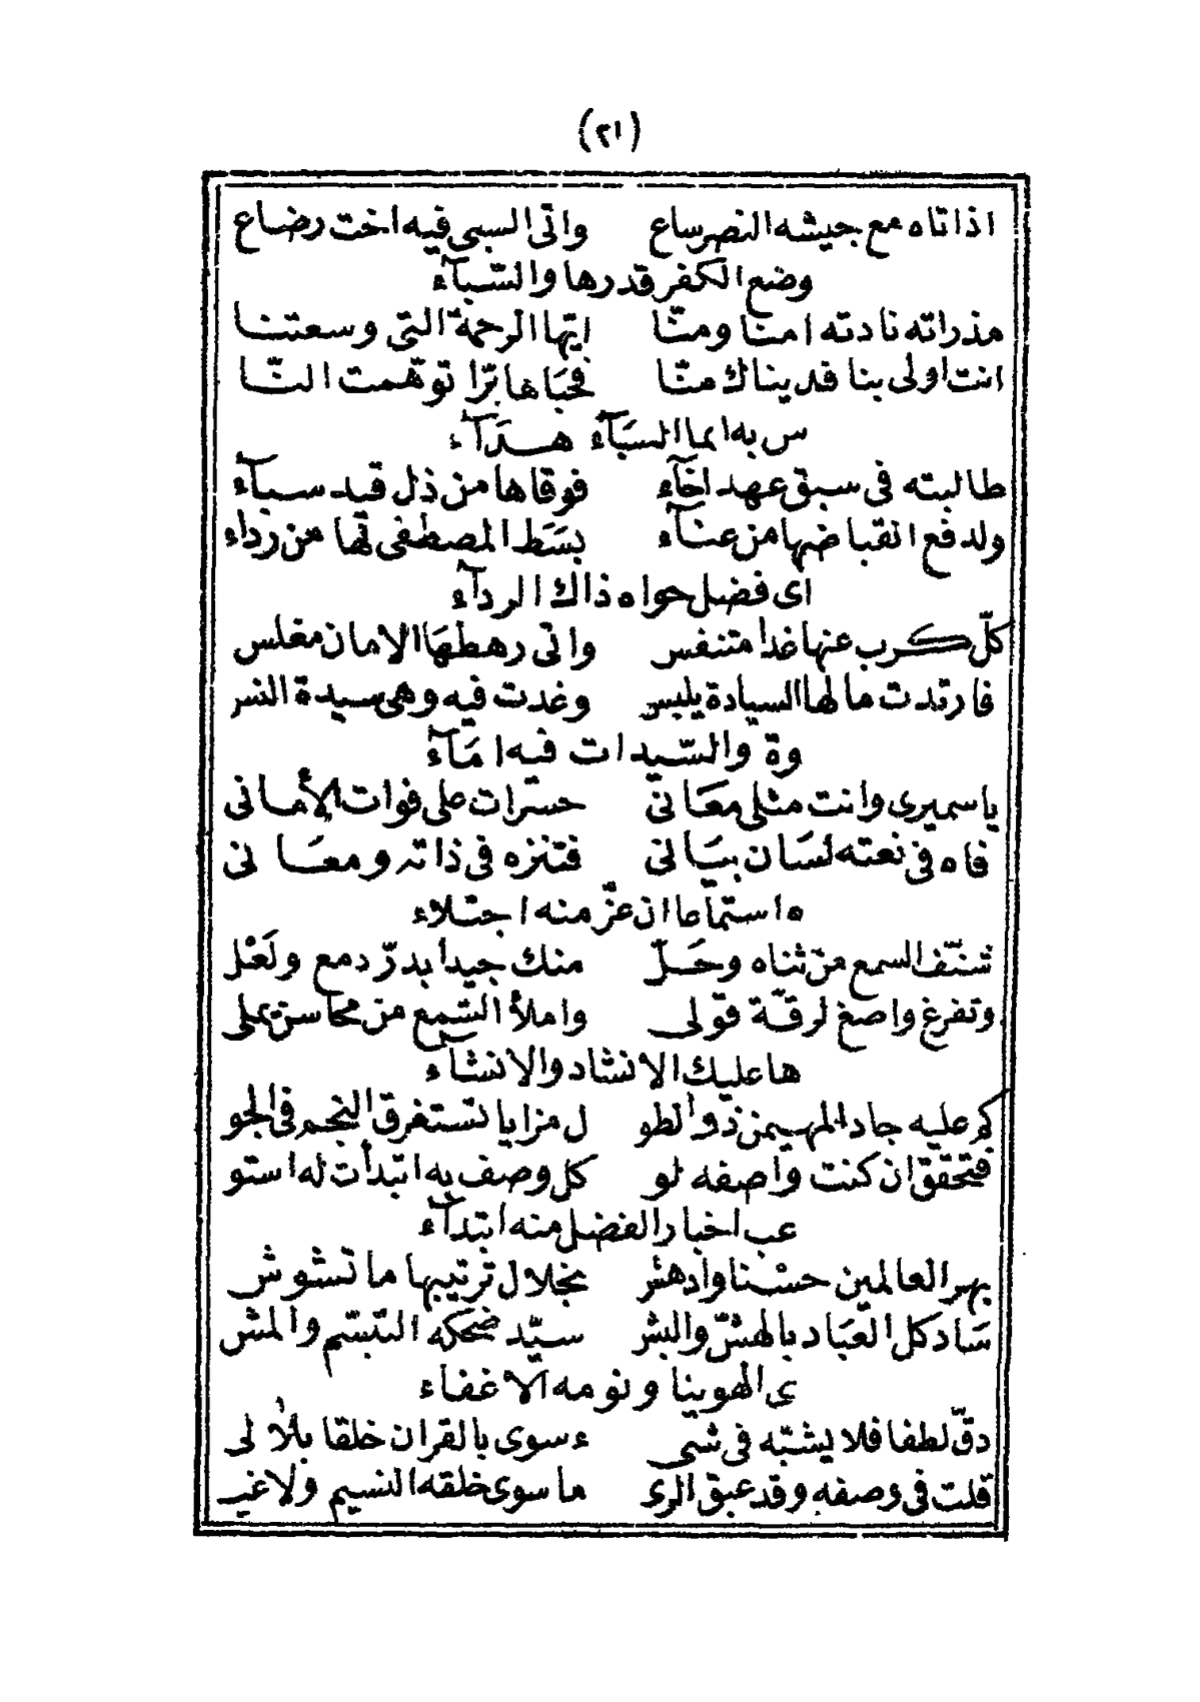 (٢١)
اذا تاه مع جيشه النصر ساع واتى السبى فيه اخت رضاع
وضع الكفر قدرها والسّبآء
مذ راته نادته امنّا ومنّا ايتها الرحمة التى وسعتنا
انت اولى بنا فديناك منّا فحبَاها برّا توهّمت النّا
س به انما السبَآء هدَآء
طالبته فى سبق عهد اخآء فوقاها من ذل قيد سبآء
ولدفع انقباضها من عنآء بسَط المصطفى لها من رداء
اى فضل حواه ذاك الردآء
كلّ كرب عنها غدا متنفس واتى رهطهَا الامان مغلس
فارتدت ما لها السيادة يلبس وغدت فيه وهى سيدة النسر
وة والسّيدات فيه امَآء
يا سميرى وانت مثلى معَانى حسرات على فوات الأمانى
فاه فى نعته لسَان بيَانى فتنزه فى ذاته ومعَانى
ه استماعا ان عزّ منه اجتلاء
شنّف السمع من ثناه وحَلّ منك جيدا بدرّ دمع ولَعْل
وتفرغ واصغ لرقّة قولى واملأ السّمع من محاسن يملى
ها عليك الانشاد والانشآء
كم عليه جاد المهيمن ذو الطو ل مزايا تستغرق النجم فى الجو
فتحقق ان كنت واصفه لو كل وصف به ابتدأت له استو
عب اخبار الفضل منه ابتدآء
بهر العالمين حسْنا وادهش بخلال ترتيبها ما تشوش
سَاد كل العبَاد بالهشّ والبش سيّد ضحكه التبسّم والمش
ى الهوينا ونومه الاغفاء
دقّ لطفا فلا يشبّه فى شى ء سوى بالقران خلقا بلالى
قلت فى وصفه وقد عبق الرى ما سوى خلقه النسيم ولا غيـ